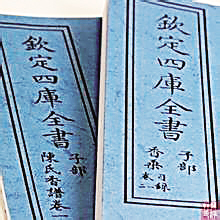 欽定四庫全書
子部
陳氏香譜卷一
欽定四庫全書
子部
香乘
目錄